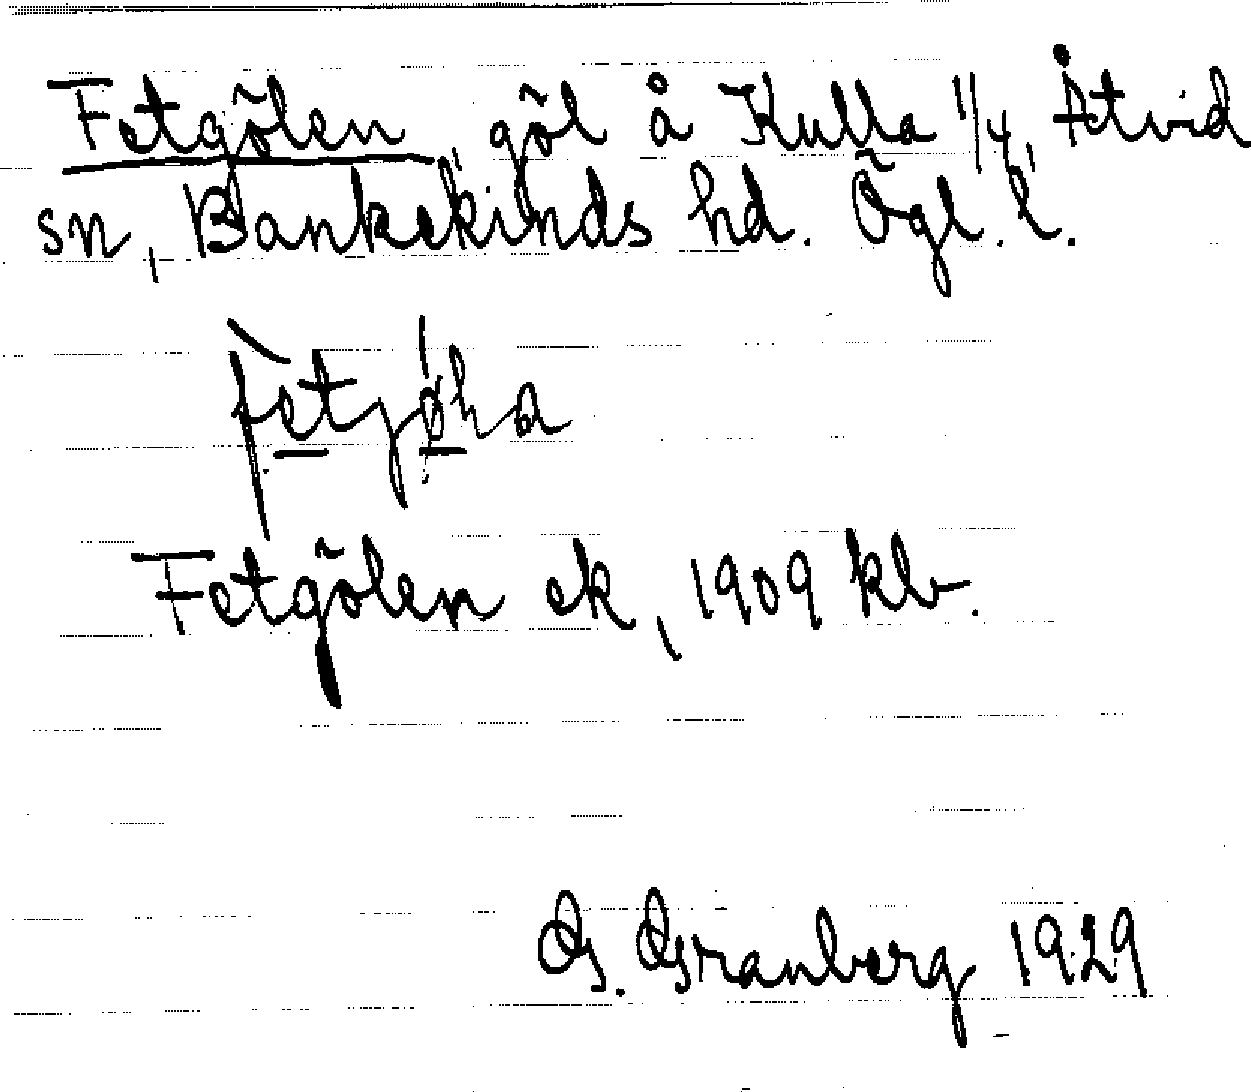 Fetgölen, göl å Kulla 1/4, Åtvid
sn, Bankekinds hd. Ögl. l.
Fetgölen ek, 1909 kb.
G. Granberg 1929